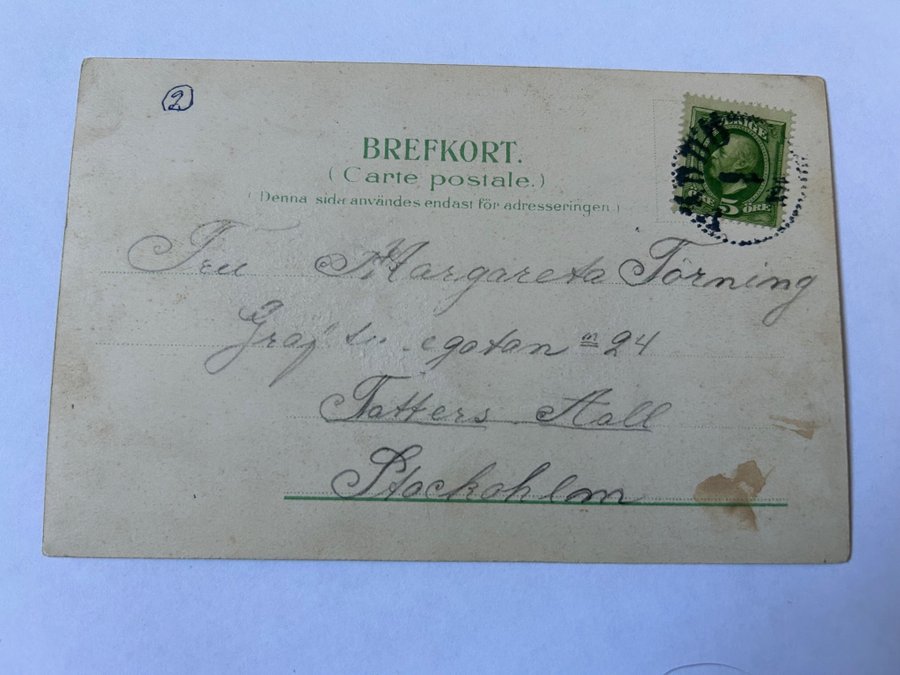 2
BREFKORT.
(Carte postale.)
(Denna sida användes endast för adresseringen.)
SVERIGE
5 ÖRE
Fru Margareta Törning
24
Tatters Aall
Stockohlm